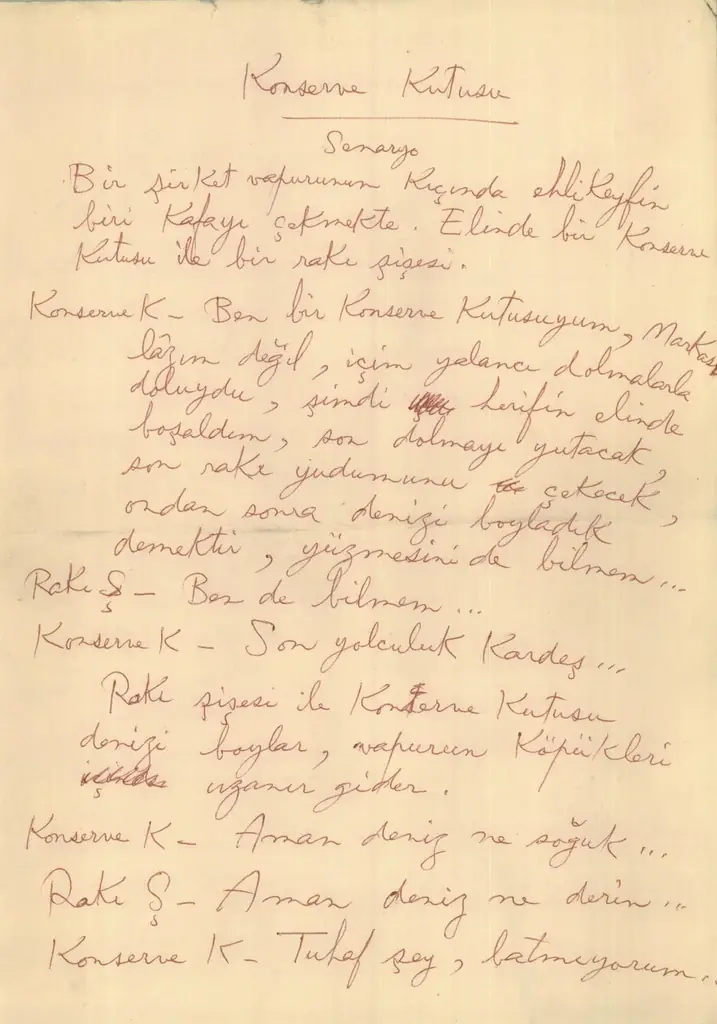 Konserve Kutusu
Senaryo
Bir şirket vapurunun kıçında ehlikeyfin
biri kafayı çekmekte. Elinde bir konserve
kutusu ile bir rakı şişesi.
Konserve K – Ben bir konserve kutusuyum, Markası
lâzım değil, içim yalancı dolmalarla
doluydu, şimdi herifin elinde
boşaldım, son dolmayı yutacak,
son rakı yudumunu çekecek,
ondan sonra denizi boyladık
demektir, yüzmesini de bilmem...
Rakı Ş – Ben de bilmem...
Konserve K – Son yolculuk kardeş...
Rakı şişesi ile Konserve Kutusu
denizi boylar, vapurun köpükleri
uzanır gider.
Konserve K – Aman deniz ne soğuk...
Rakı Ş – Aman deniz ne derin...
Konserve K – Tuhaf şey, batmıyorum...